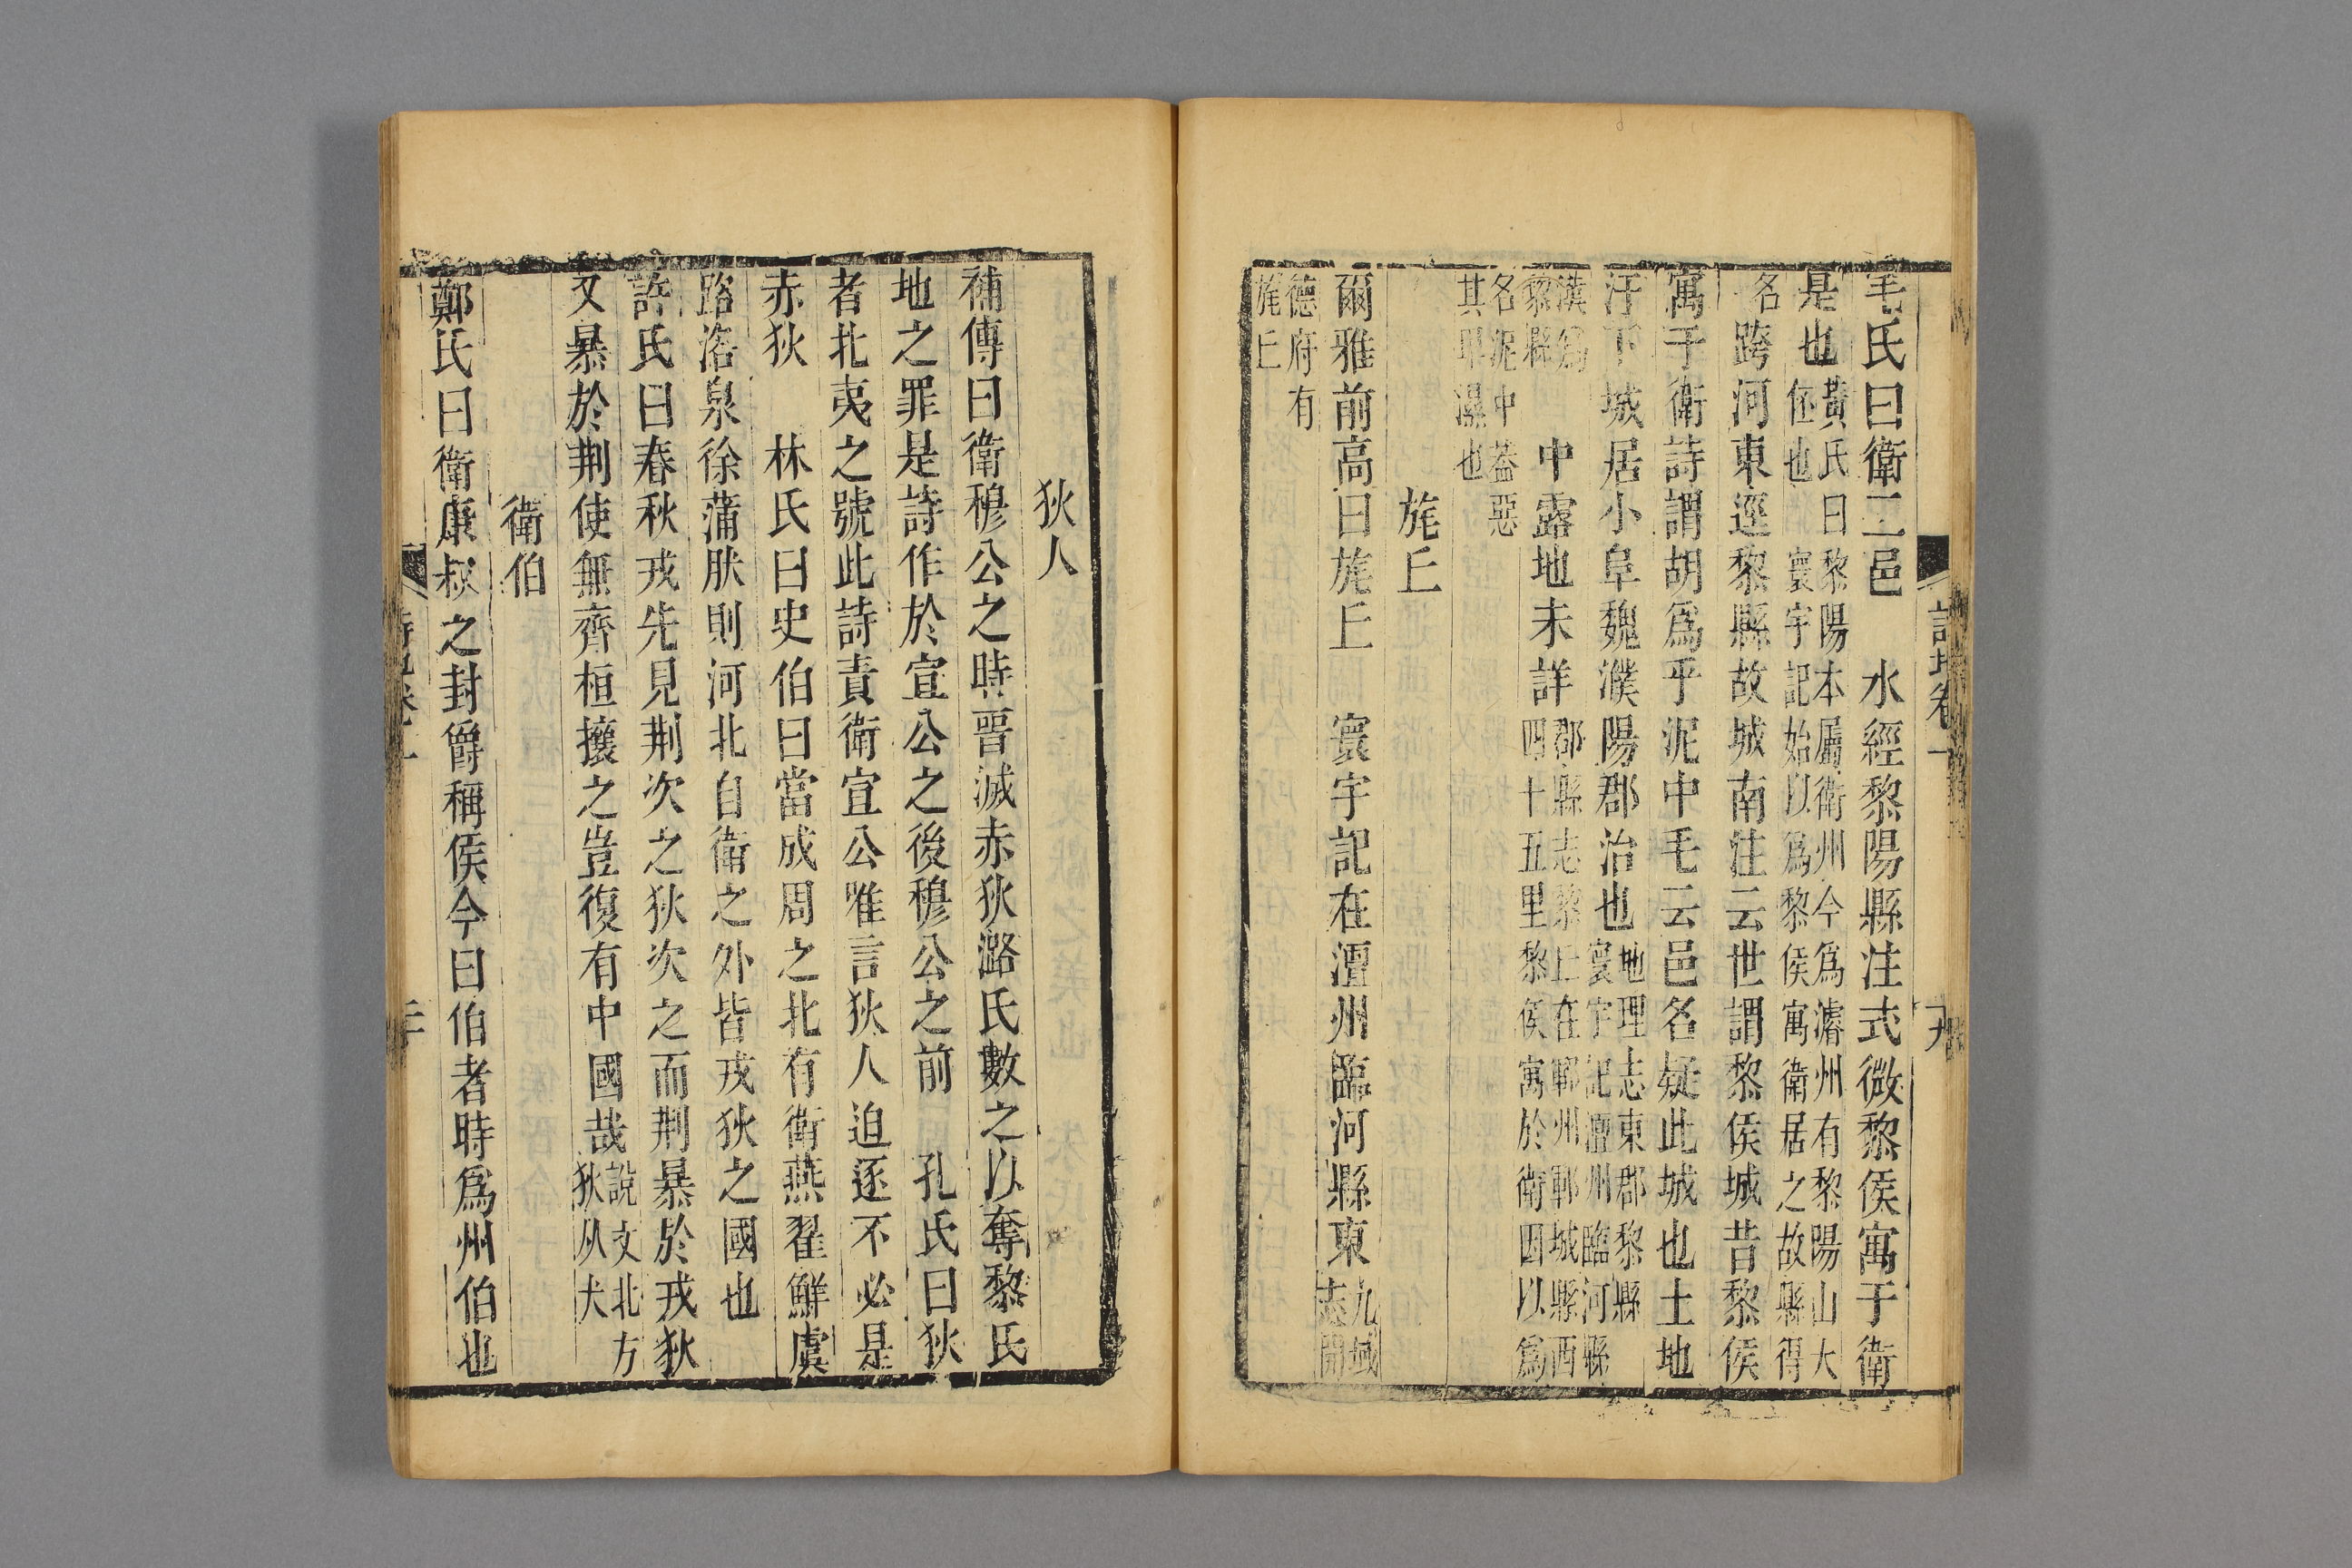 毛氏曰衛二邑　水經黎陽縣注式微黎侯寓于衛
是也黃氏曰黎陽本屬衛州今爲濬州有黎陽山大伾也　寰宇記始以爲黎侯寓衛居之故縣得
名　跨河東逕黎縣故城南注云世謂黎侯城昔黎侯
寓于衛詩謂胡爲乎泥中毛云邑名疑此城也土地
汙下城居小阜魏濮陽郡治也地理志東郡黎縣寰宇記澶州臨河縣
漢爲黎縣　中露地未詳郡縣志黎丘在鄆州鄆城縣西四十五里黎侯寓於衛因以爲
名泥中蓋惡其卑濕也
旄丘
爾雅前高曰旄丘　寰宇記在澶州臨河縣東九域志開
德府有旄丘
詩地　卷一
十九
狄人
補傳曰衛穆公之時晉滅赤狄潞氏數之以奪黎氏
地之罪是詩作於宣公之後穆公之前　孔氏曰狄
者北夷之號此詩責衛宣公唯言狄人迫逐不必是
赤狄　林氏曰史伯曰當成周之北有衛燕翟鮮虞
路洛泉徐蒲朕則河北自衛之外皆戎狄之國也
許氏曰春秋戎先見荆次之狄次之而荆暴於戎狄
又暴於荆使無齊桓攘之豈復有中國哉說文北方狄从犬
衛伯
鄭氏曰衛康叔之封爵稱侯今曰伯者時爲州伯也
二十